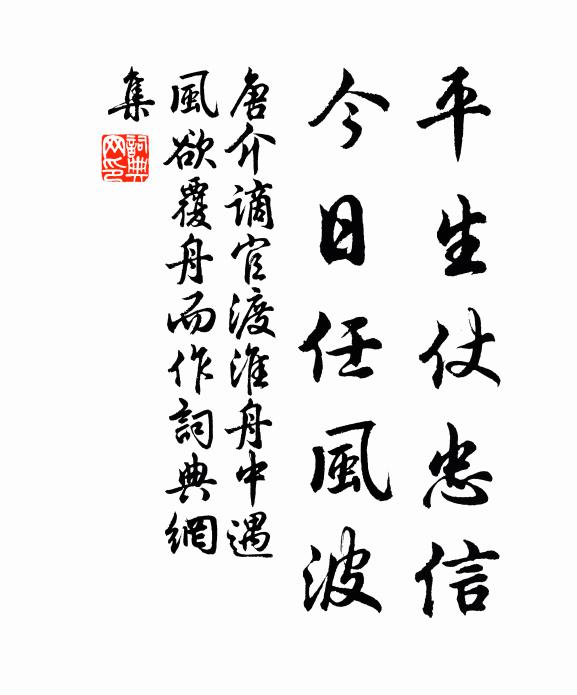 平生仗忠信
今日任風波
唐介謫官渡淮舟中遇
風欲覆舟而作詞典網
集
詞典
网印